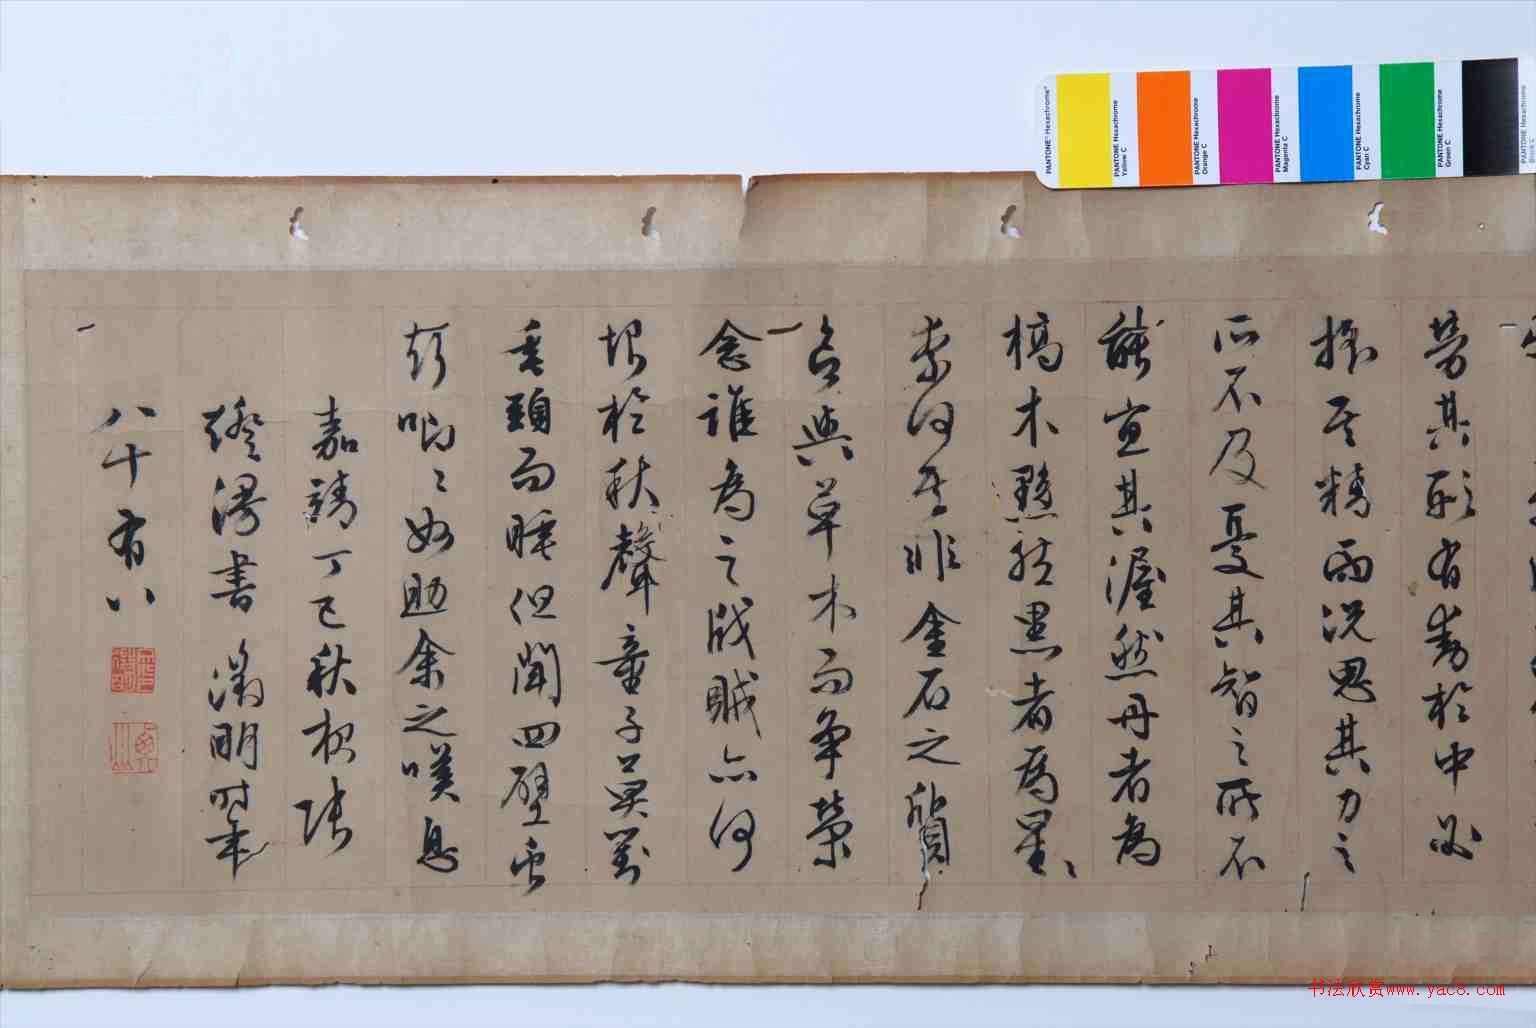 勞其形有動於中必
搖其精而況思其力之
所不及憂其智之所不
能宜其渥然丹者為
槁木黟然黑者為星〻
柰何其非金石之質
欲與草木而爭榮
念誰為之戕賊亦何
恨於秋聲童子莫對
垂頭而睡但聞四壁虫
聲唧〻如助余之嘆息
嘉靖丁巳秋夜張
燈漫書 徵明時年
八十有八
PANTONE® Hexachrome®
PANTONE Hexachrome
Yellow C
PANTONE Hexachrome
Orange C
PANTONE Hexachrome
Magenta C
PANTONE Hexachrome
Cyan C
PANTONE Hexachrome
Green C
PANTONE Hexachrome
Black C
书法欣赏www.yac8.com